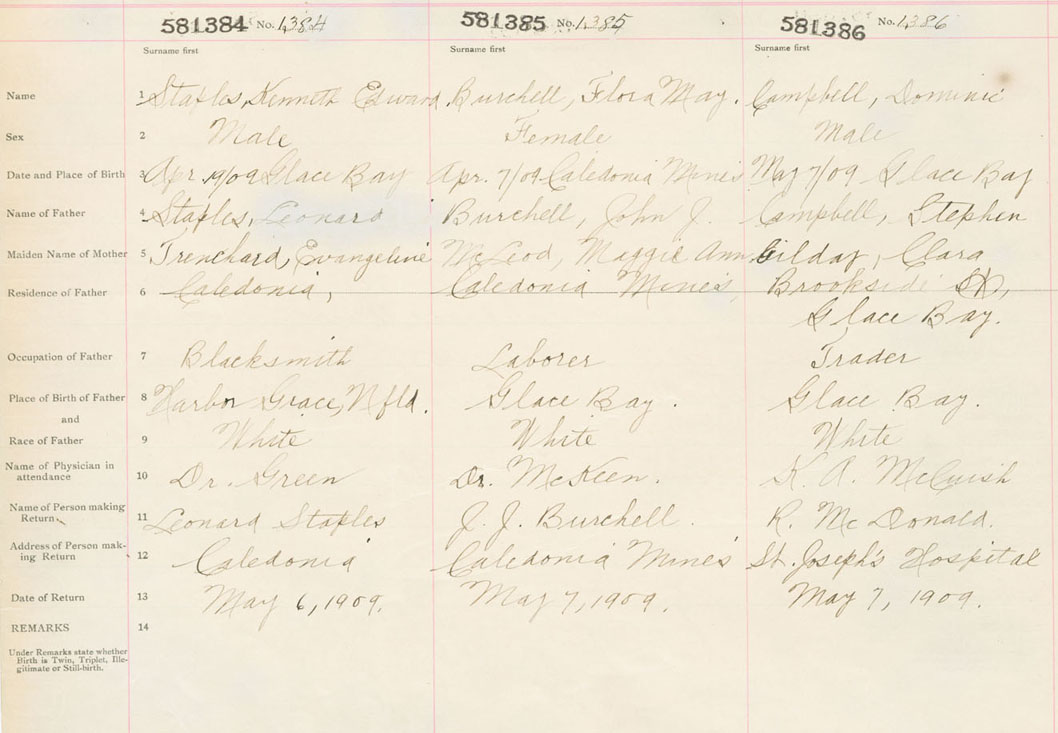 581384 No. 1384 581385 No. 1385 581386 No. 1386
Surname first Surname first Surname first
Name 1 Staples, Kenneth Edward Burchell, Flora May. Campbell, Dominic
Sex 2 Male Female Male
Date and Place of Birth 3 Apr. 19/09 Glace Bay Apr. 7/09 Caledonia Mines May 7/09 Glace Bay
Name of Father 4 Staples, Leonard Burchell, John J. Campbell, Stephen
Maiden Name of Mother 5 Trenchard, Evangeline McLeod, Maggie Ann Gilday, Clara
Residence of Father 6 Caledonia, Caledonia Mines, Brookside St,
Glace Bay.
Occupation of Father 7 Blacksmith Laborer Trader
Place of Birth of Father 8 Harbor Grace, Nfld. Glace Bay. Glace Bay.
and
Race of Father 9 White White White
Name of Physician in
attendance 10 Dr. Green Dr. McKeen. K. A. McCuish
Name of Person making
Return 11 Leonard Staples J. J. Burchell. R. McDonald.
Address of Person mak-
ing Return 12 Caledonia Caledonia Mines St. Joseph's Hospital
Date of Return 13 May 6, 1909. May 7, 1909. May 7, 1909.
REMARKS 14
Under Remarks state whether
Birth is Twin, Triplet, Ille-
gitimate or Still-birth.